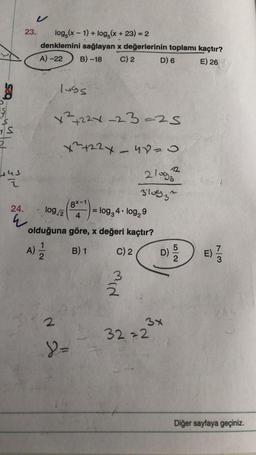 23. log₅(x − 1) + log₅(x + 23) = 2
denklemini sağlayan x değerlerinin toplamı kaçtır?
A) −22 B) −18 C) 2 D) 6 E) 26
x²+22x −23 = 25
x²+22x − 48 = 0
24. log√2 (8ˣ⁻¹/4) = log₃4 · log₂9
olduğuna göre, x değeri kaçtır?
A) 1/2 B) 1 C) 2 D) 5/2 E) 7/3
3/2
32 = 2³ˣ
Diğer sayfaya geçiniz.